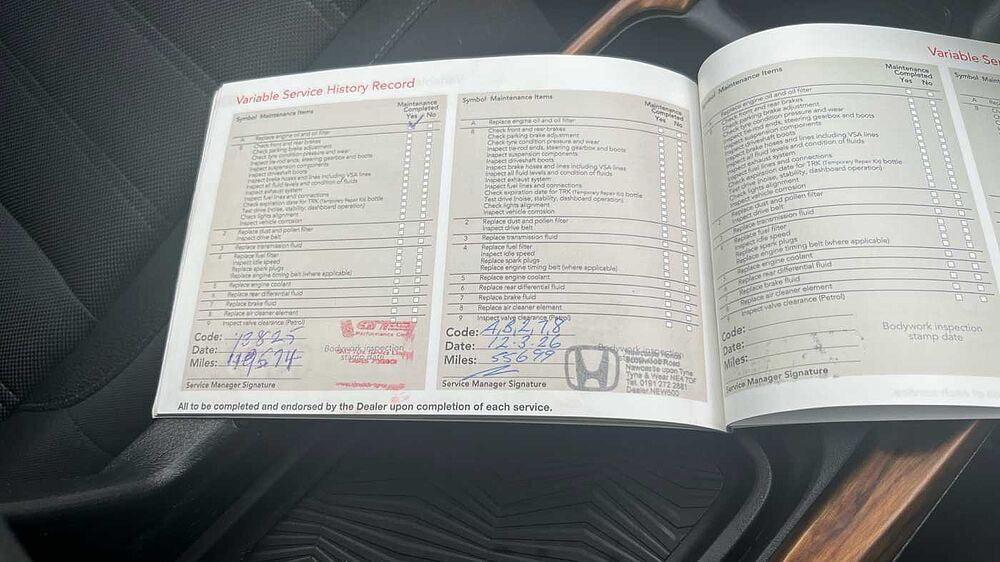 Variable Service History Record
Symbol Maintenance Items
Maintenance
Completed
Yes No
A Replace engine oil and oil filter
B Check front and rear brakes
Check parking brake adjustment
Check tyre condition pressure and wear
Inspect tie-rod ends, steering gearbox and boots
Inspect suspension components
Inspect driveshaft boots
Inspect brake hoses and lines including VSA lines
Inspect all fluid levels and condition of fluids
Inspect exhaust system
Inspect fuel lines and connections
Check expiration date for TRK (Temporary Repair Kit) bottle
Test drive (noise, stability, dashboard operation)
Check lights alignment
Inspect vehicle corrosion
2 Replace dust and pollen filter
Inspect drive belt
3 Replace transmission fluid
4 Replace fuel filter
Inspect idle speed
Replace spark plugs
Replace engine timing belt (where applicable)
5 Replace engine coolant
6 Replace rear differential fluid
7 Replace brake fluid
8 Replace air cleaner element
9 Inspect valve clearance (Petrol)
Code:
Date:
Miles:
Bodywork inspection
stamp date
Service Manager Signature
Symbol Maintenance Items
Maintenance
Completed
Yes No
A Replace engine oil and oil filter
B Check front and rear brakes
Check parking brake adjustment
Check tyre condition pressure and wear
Inspect tie-rod ends, steering gearbox and boots
Inspect suspension components
Inspect driveshaft boots
Inspect brake hoses and lines including VSA lines
Inspect all fluid levels and condition of fluids
Inspect exhaust system
Inspect fuel lines and connections
Check expiration date for TRK (Temporary Repair Kit) bottle
Test drive (noise, stability, dashboard operation)
Check lights alignment
Inspect vehicle corrosion
2 Replace dust and pollen filter
Inspect drive belt
3 Replace transmission fluid
4 Replace fuel filter
Inspect idle speed
Replace spark plugs
Replace engine timing belt (where applicable)
5 Replace engine coolant
6 Replace rear differential fluid
7 Replace brake fluid
8 Replace air cleaner element
9 Inspect valve clearance (Petrol)
Code: A,B,2,7,8
Date: 12.3.26
Miles: 55699
Newcastle upon Tyne
Tyne & Wear NE4 7DF
Tel. 0191 272 2881
Service Manager Signature
All to be completed and endorsed by the Dealer upon completion of each service.
Variable Ser
Maintenance Items
Maintenance
Completed
Yes No
Replace engine oil and oil filter
Check front and rear brakes
Check parking brake adjustment
Check tyre condition pressure and wear
Inspect tie-rod ends, steering gearbox and boots
Inspect suspension components
Inspect driveshaft boots
Inspect brake hoses and lines including VSA lines
Inspect all fluid levels and condition of fluids
Inspect exhaust system
Inspect fuel lines and connections
Check expiration date for TRK (Temporary Repair Kit) bottle
Test drive (noise, stability, dashboard operation)
Check lights alignment
Inspect vehicle corrosion
Replace dust and pollen filter
Inspect drive belt
Replace transmission fluid
Replace fuel filter
Inspect idle speed
Replace spark plugs
Replace engine timing belt (where applicable)
Replace engine coolant
Replace rear differential fluid
Replace brake fluid
Replace air cleaner element
Inspect valve clearance (Petrol)
Code:
Date:
Miles:
Bodywork inspection
stamp date
Service Manager Signature
Symbol